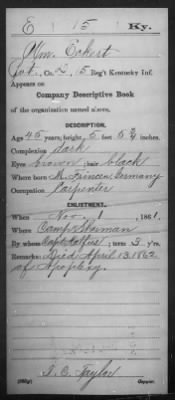 E 15 Ky.
Wm. Eckert
Pvt., Co. D, 5 Reg't Kentucky Inf.
Appears on
Company Descriptive Book
of the organization named above.
DESCRIPTION.
Age 45 years; height 5 feet 6 3/4 inches.
Complexion dark
Eyes brown; hair black
Where born Germany
Occupation Carpenter
ENLISTMENT.
When Nov. 1, 1861.
Where Camp Sherman
By whom Capt.; term 3 y'rs.
Remarks: Died April 13, 1862
of Apoplexy.
Taylor
Copyist.